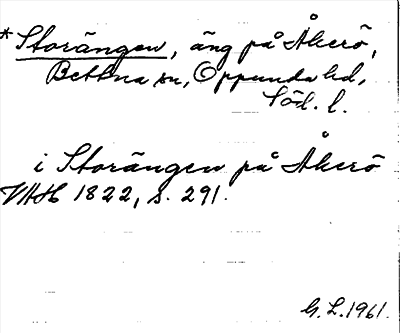 *Storängen, äng på Åkerö,
Bettna sn, Oppunda hd,
Söd. l.
i Storängen på Åkerö
VAH 1822, s. 291.
G. L. 1961.